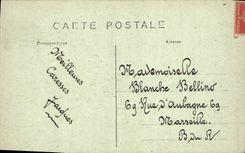 CARTE POSTALE
Correspondance
Adresse
Meilleures
Caresses
Jacques
Mademoiselle
Blanche Bellino
69 Rue d'Aubagne 69
Marseille.
B du R